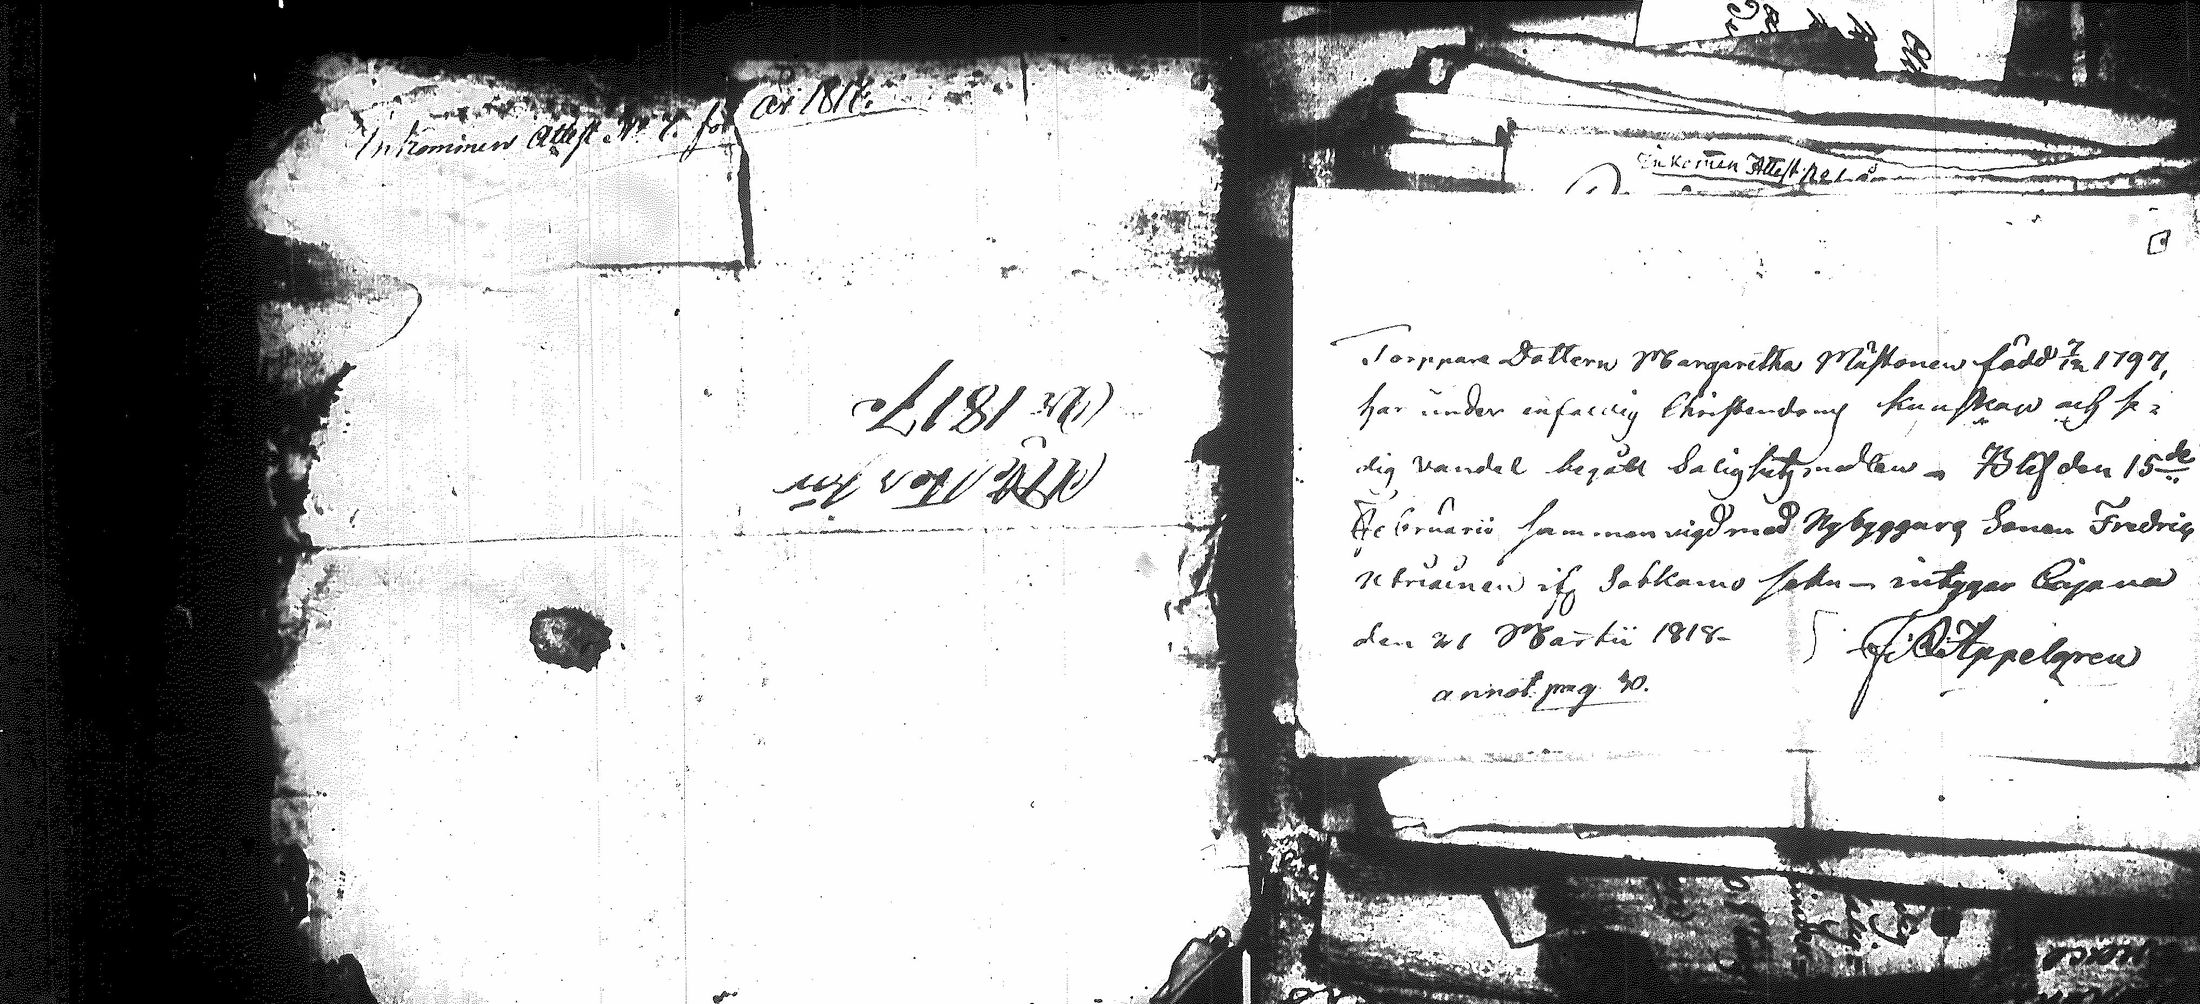 Inkommen Attest N:o för
År 1818.
Attester för
År 1817
Inkomen Attest
Torppare Dottern Margaretha Mustonen född 7/12 1797,
har under enfaldig Christendoms kunskap och se=
dig vandel begått Salighetz medlen – Blef den 15de
Februarii sammanvigd med Nybyggare Sonen Fredric
ifr. Sotkamo sokn – intygar Cajana
den 21 Martii 1818–
Appelgren
annot. pag 30.